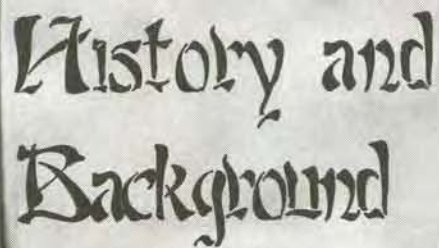 History and
Background